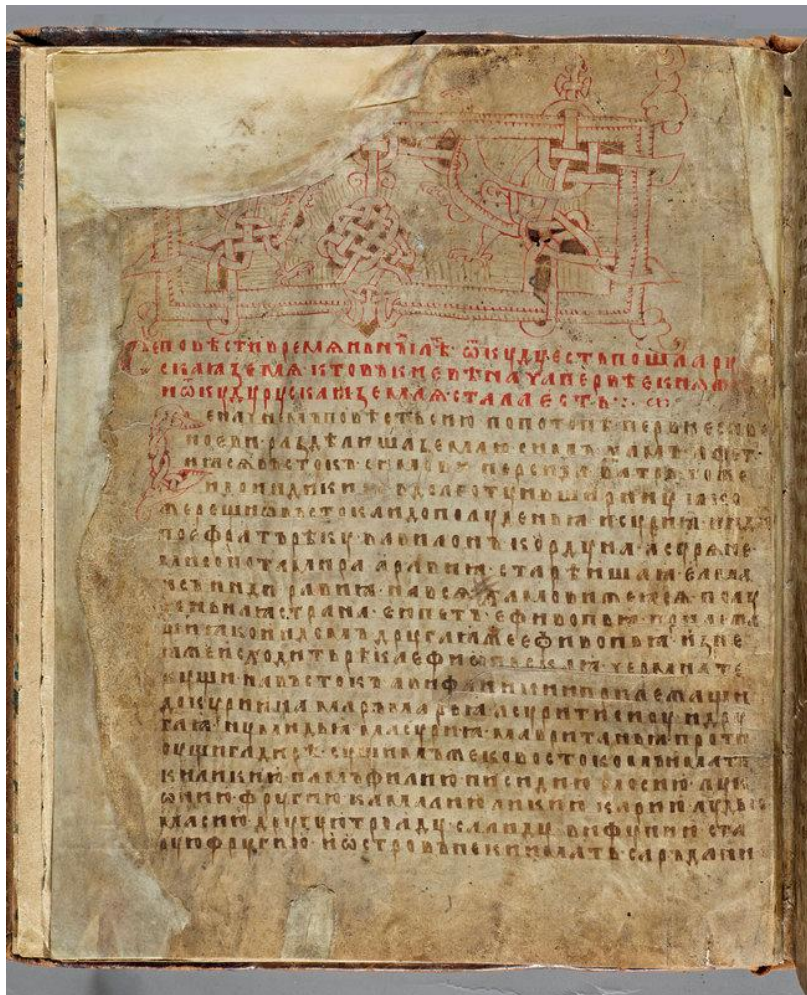 Се повѣсти времѧньнъıх лѣт ѿкуду есть пошла ру
скаꙗ земѧ кто въ киевѣ нача первѣе кнѧж
и ѿкуду рускаꙗ землѧ стала есть
Се начнемъ повѣсть сию по потопѣ первие снве
ноеви раздѣлиша землю симъ хамъ афет
и ꙗсѧ въстокъ симови персида ватрь тоже
и до индикиꙗ в долготу и в ширину ꙗко
же рещи ѿ въстока и до полуденьꙗ и суриꙗ
по ефратъ рѣку вавилонъ кордуна асурѧне
месопотамира аравиꙗ старѣишаꙗ елмаи
съ инди равиꙗ на всѧ хамови же ꙗсѧ полу
деньнаꙗ страна еюпетъ ефивопьꙗ прилежа
щиꙗ ко индомъ другаꙗ же ефивопьꙗ из не
ꙗже исходить рѣка ефиѡпьскаꙗ чермна те
кущи на въстокъ прилежащи
до куриниꙗ маръмарьꙗ асурити дру
гаꙗ нумидьꙗ масуриꙗ мавританьꙗ проти
ву сущи гадирѣ сущимъ же ко востокомъ имать
киликию памъфилию писидию мосию лука
ѡнию фругию камалию ликию карию лудью
масию другую троаду солиду вифунию ста
рую фругию и ѡстрови неки имать саръдани